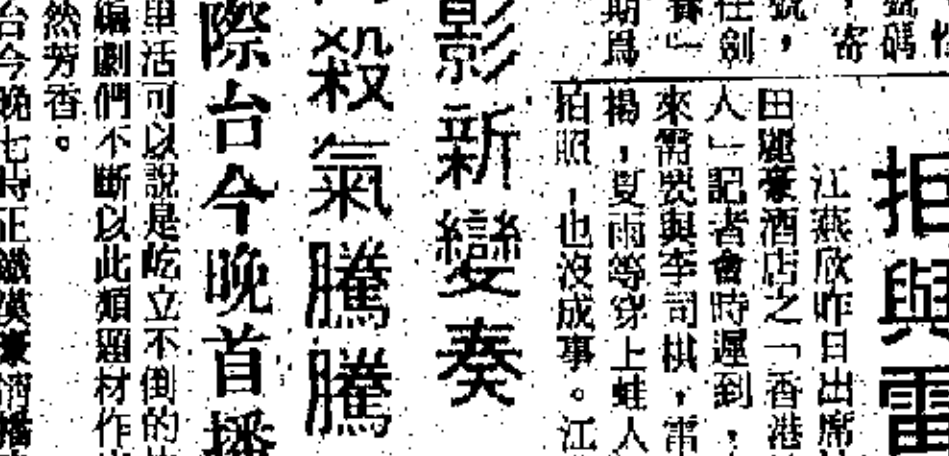 號碼
，寄
號，
任劍
期爲
拒與雷
江燕欣昨日出席
田麗豪酒店之「香港
人」記者會時遲到，
來需要與李司棋，雷
楊，夏雨等穿上蛙人
拍照，也沒成事。江
影新變奏
殺氣騰騰
際台今晚首播
里活可以說是屹立不倒的
編劇們不斷以此類題材作
然芳香。
台今晚七時正